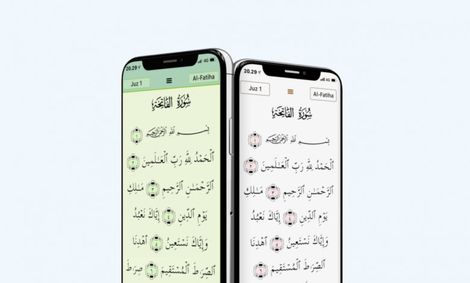 20.29 4G
Juz 1 ☰ Al-Fatiha
سُورَةُ الفَاتِحَةِ
بِسْمِ اللَّهِ الرَّحْمَٰنِ الرَّحِيمِ ١
الْحَمْدُ لِلَّهِ رَبِّ الْعَالَمِينَ ٢
الرَّحْمَٰنِ الرَّحِيمِ ٣ مَالِكِ
يَوْمِ الدِّينِ ٤ إِيَّاكَ نَعْبُدُ
وَإِيَّاكَ نَسْتَعِينُ ٥ اهْدِنَا
الصِّرَاطَ الْمُسْتَقِيمَ ٦ صِرَاطَ
20.29 4G
Juz 1 ☰ Al-Fatiha
سُورَةُ الفَاتِحَةِ
بِسْمِ اللَّهِ الرَّحْمَٰنِ الرَّحِيمِ ١
الْحَمْدُ لِلَّهِ رَبِّ الْعَالَمِينَ ٢
الرَّحْمَٰنِ الرَّحِيمِ ٣ مَالِكِ
يَوْمِ الدِّينِ ٤ إِيَّاكَ نَعْبُدُ
وَإِيَّاكَ نَسْتَعِينُ ٥ اهْدِنَا
الصِّرَاطَ الْمُسْتَقِيمَ ٦ صِرَاطَ